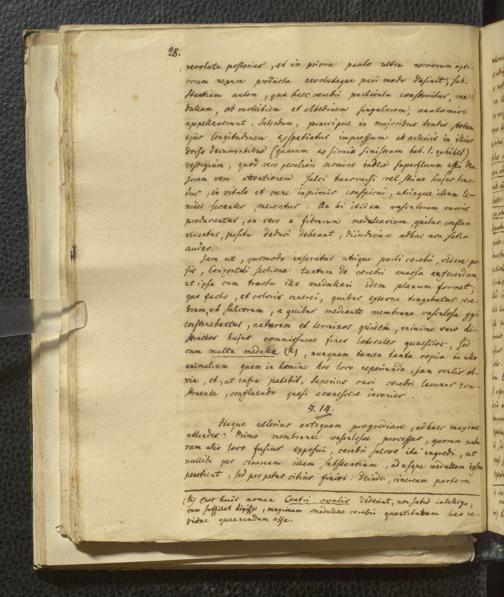 28.
revoluta posterius, et in priora paulo ultra nervorum opti-
corum nexum producta revolutaque pari modo desinit; sub-
stantiam autem, qua haec cerebri particula constituitur, me-
dullam, ob mollitiem et albedinem singularem, anatomici
appellaverunt. Solendum, praecipue in majoribus brutis
ejus longitudinem impressum et arteriis in illius
dorso decurrentibus (quarum ex simia sinistram tab. I. exhibet)
vestigium, quod vero peculiari nomine indice superfluum est. Ma-
jorem vero attentionem sulci transversi vel striae hujus trac-
tus, in vitulo et cane inprimis conspicui, utrinque illum le-
niter secantes merentur. An hi itidem vasculorum ramis
producantur, an vero a fibrarum medullarium, quibus conflari
videntur, positu deduci debeant, dijudicare adhuc non satis
audeo.
Jam ut, quomodo inseratur utrique parti cerebri, videre pos-
sis, horizontali sectione tantum de cerebri massa
ut ipsa cum tractu illo medullari idem planum formet;
quo facto, et coloris cinerei, quibus externe tingebatur cere-
brum, et sulcorum, a quibus mediante membrana vasculosa gyri
constituebantur, naturam et terminos quidem, minime vero di-
stinctos hujus commissurae fines laterales quaesitos, sed
cum multa medulla (k), nunquam tamen tanta copia in ullo
animalium quam in homine hoc loco reperiunda, jam oculis ob-
via, et, ut infra patebit, superius cavi cerebri lacunar con-
stituente, confluendo quasi evanescere invenies.
§. 14.
Neque ulterius antequam progrediare, adhaec maxime
attendes: Primo membranae vasculosae processus, quorum natu-
ram alio loco fusius exposui, cerebri sulcos ita ingredi, ut
nullibi per cineream illam substantiam, ad usque medullam ipsam
penetrent, sed perpetuo citius finiri: deinde, cineream partem
(k) Cur huic nomen Centri ovalis dederint, non satis intelligo,
cum sufficiat dixisse, maximam medullae cerebri quantitatem hac re-
gione quaerendam esse.